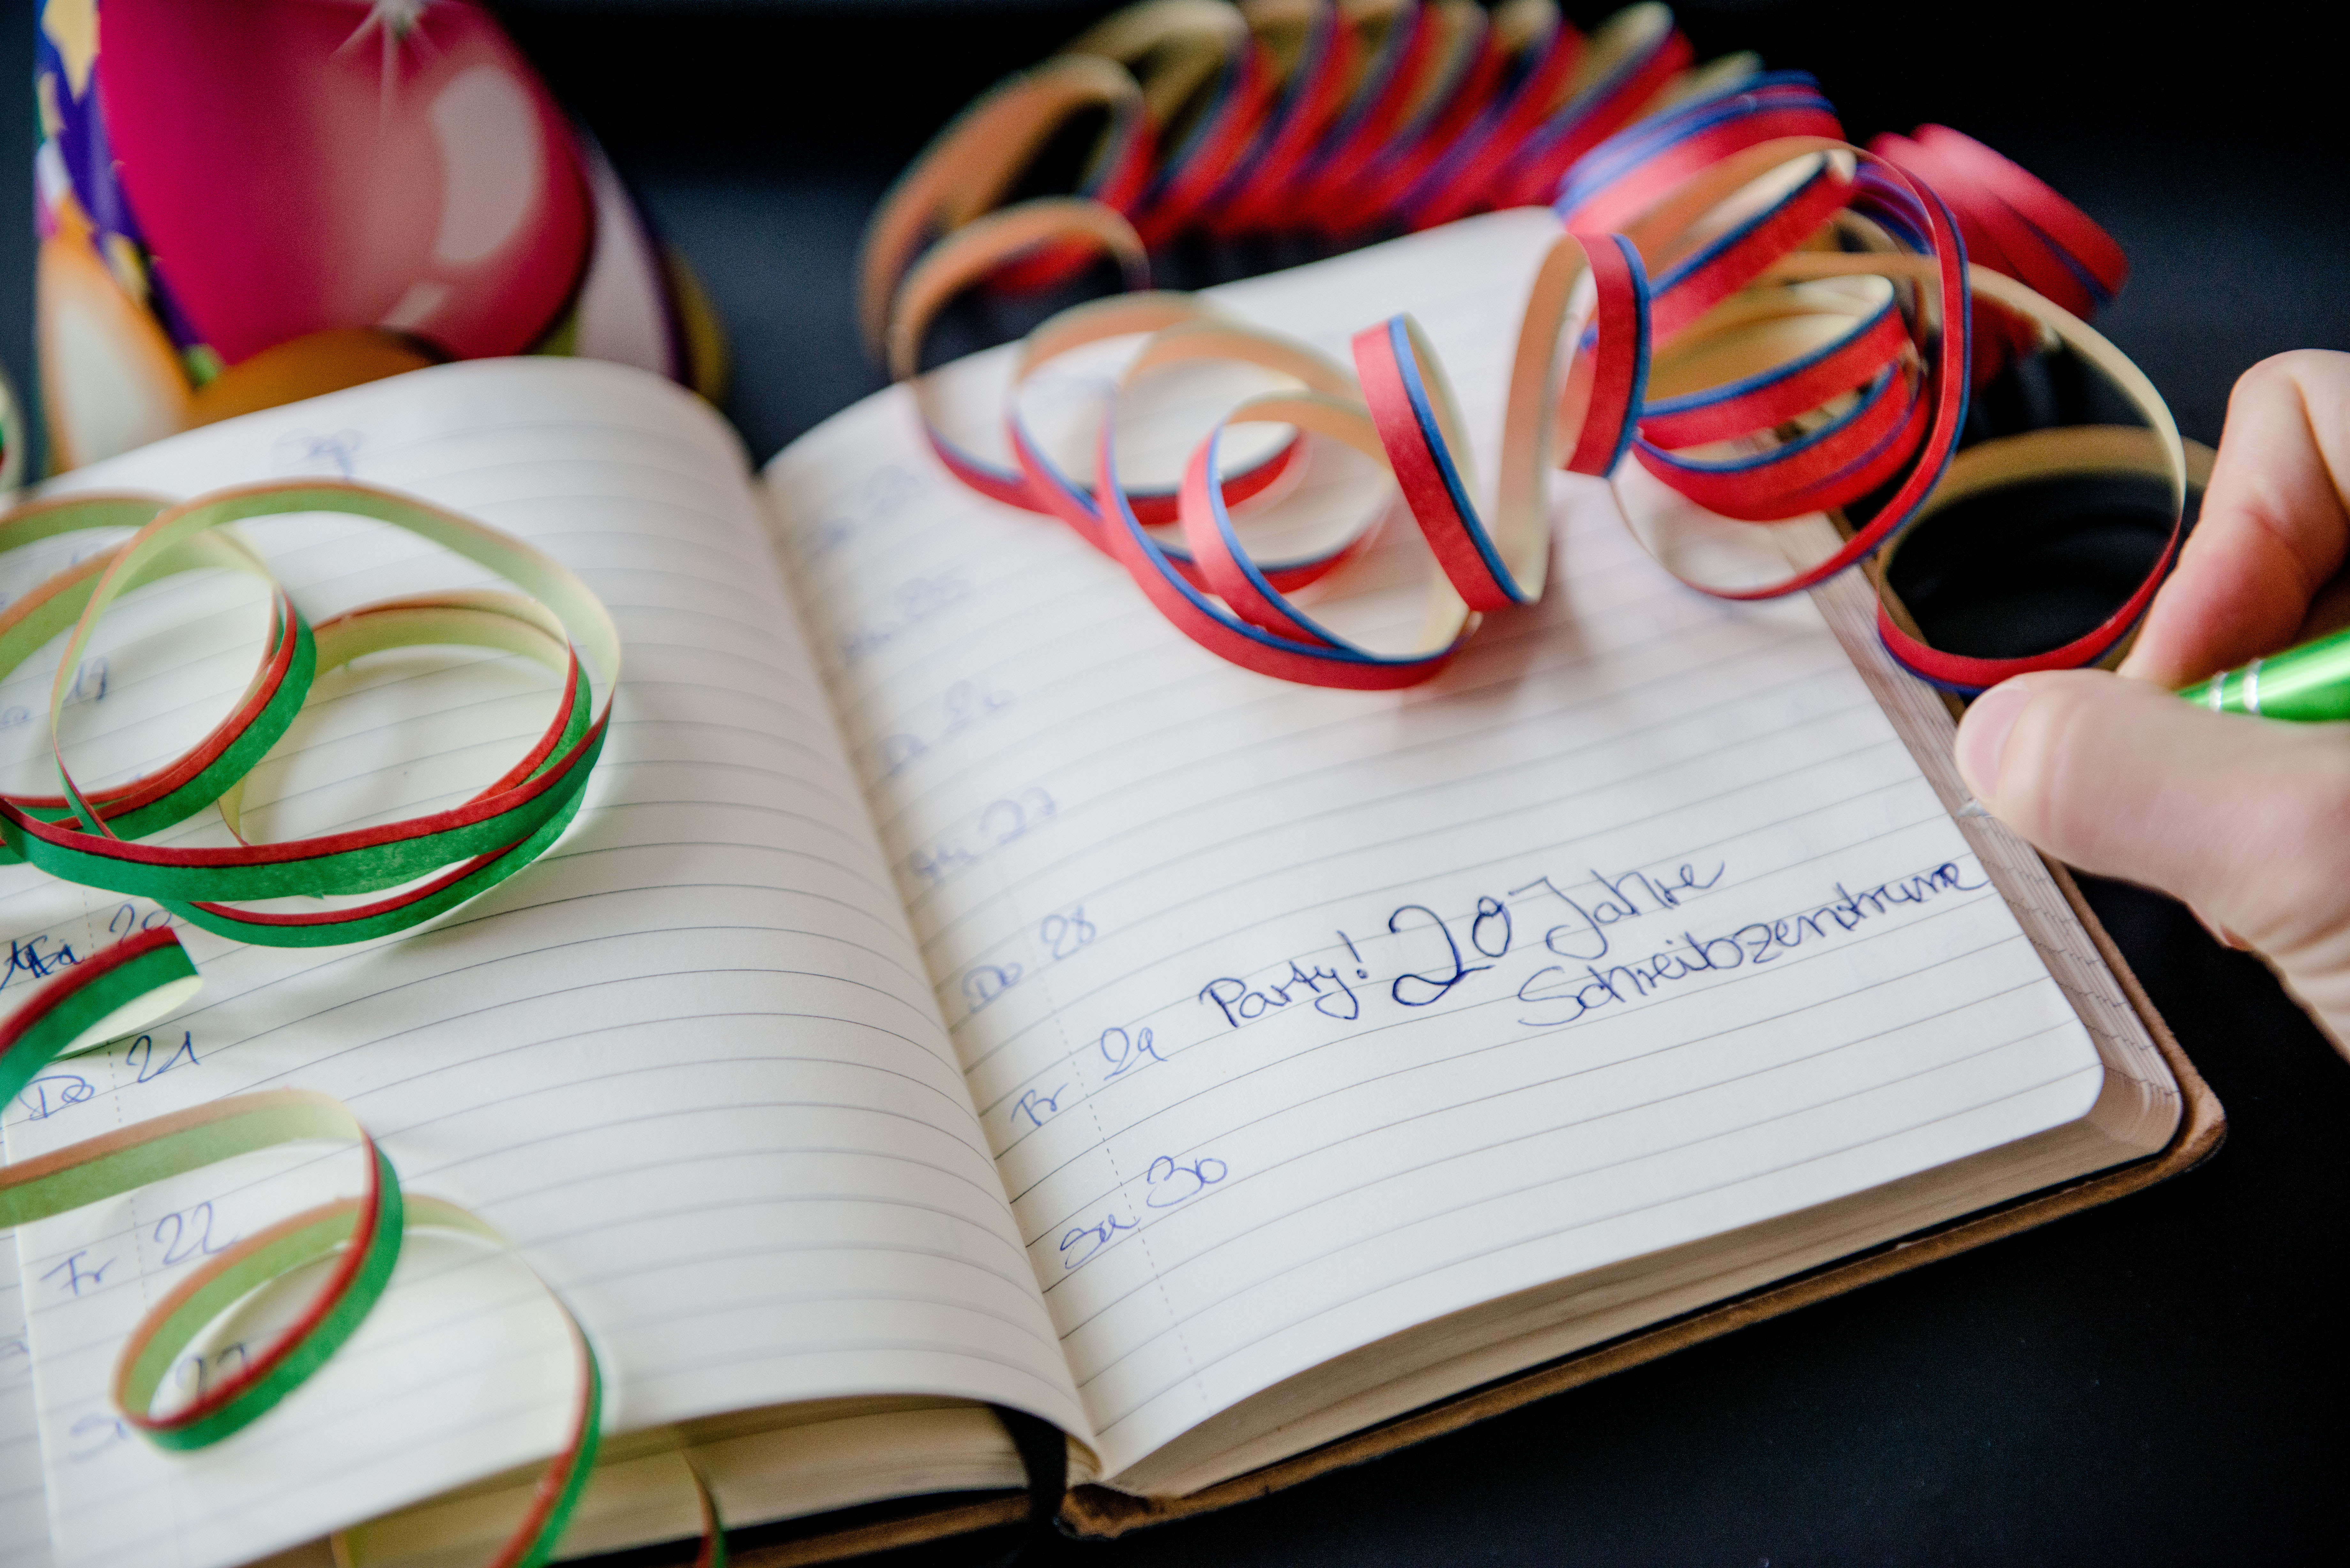 Sep
19
20
Do 21
Fr 22
25
Di 26
Mi 27
Do 28
Fr 29 Party! 20 Jahre
Schreibzentrum
Sa 30